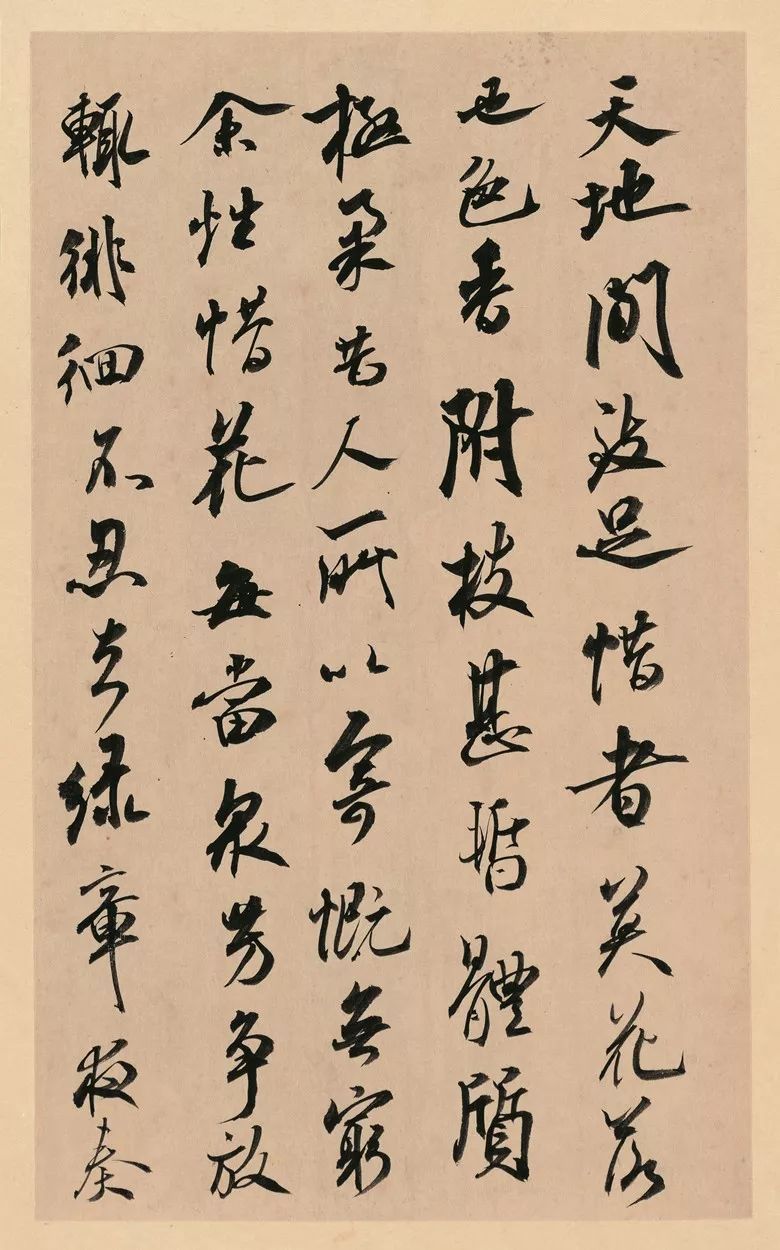 天地間最足惜者莫花若
也色香附枝甚暫體質
極柔昔人所以寄慨無窮
余性惜花每當衆芳爭放
輒徘徊不忍去綠章夜奏